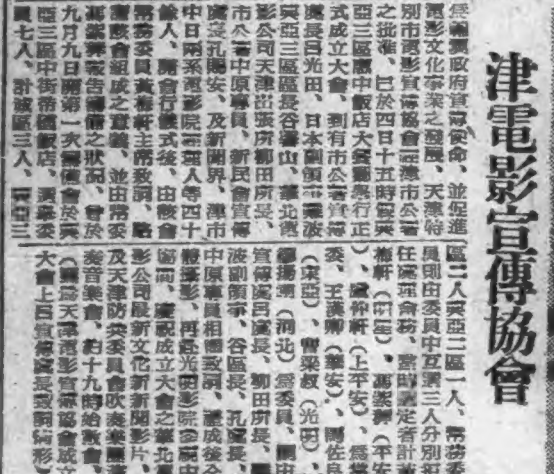 津電影宣傳協會
政府宣傳使命、並促進
電影文化事業之發展、天津特
別市電影宣傳協會經津市公署
之批准、已於四日十五時假興
亞三區惠中飯店大禮堂舉行正
式成立大會、到有市公署宣傳
處長呂光田、日本副領事難波
興亞三區區長谷書山、華北電
影公司天津出張所柳田所長、
市公署中原專員、新民會宣傳
室長孔賜安、及新聞界、津市
中日兩系電影院經理人等四十
餘人、開會行儀式後、由該會
常務委員黃梅軒主席致詞、略
謂該會組成之意義、並由常委
馮紫墀報告籌備之狀況、曾於
九月九日開第一次籌備會於興
亞三區中街帝國飯店、選舉委
員七人、計該區三人、興亞三
區二人興亞二區一人、常務
員則由委員中互選三人分別担
任處理會務、當時選定者計黃
梅軒(明星)、馮紫墀(平安
)、仲軒(上平安)、為常
委、王漢卿(華安)、佐良
(東亞)、叔(光明)、
(河北)為委員、
宣傳處呂處長、柳田所長、
波副領事、谷區長、孔室長、
中原專員相繼致詞、禮成後全
攝影、再至光明影院參觀中
協同、慶祝成立大會之華北電
影公司最新文化新聞影片、
及天津防共委員會吹奏樂隊演
奏音樂會、約十九時始散會、
(圖為天津電影宣傳協會成立
大會上呂宣傳處長致詞情形)